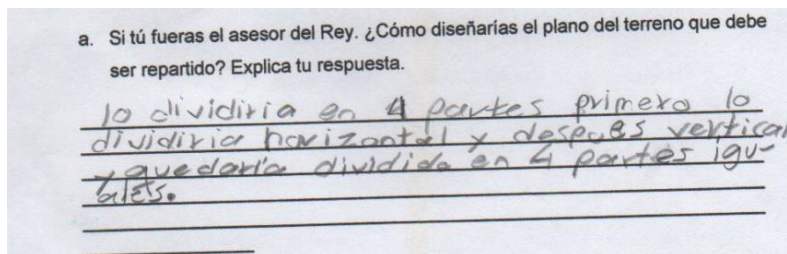 a. Si tú fueras el asesor del Rey. ¿Cómo diseñarías el plano del terreno que debe
ser repartido? Explica tu respuesta.
lo dividiria en 4 partes primero lo
dividiria horizontal y despues vertical
y quedaría dividido en 4 partes igu-
ales.